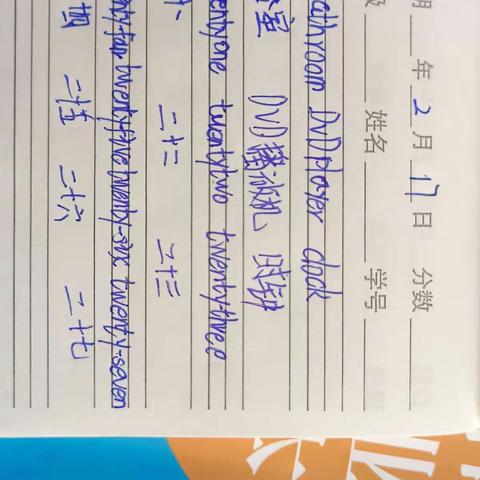 年 2 月 17 日 分数
姓名 学号
athroom DVD player clock
室 DVD播放机 时钟
entyone twentytwo twentythree
二十二 二十三
twenty-five twenty-six twenty-seven
二十五 二十六 二十七